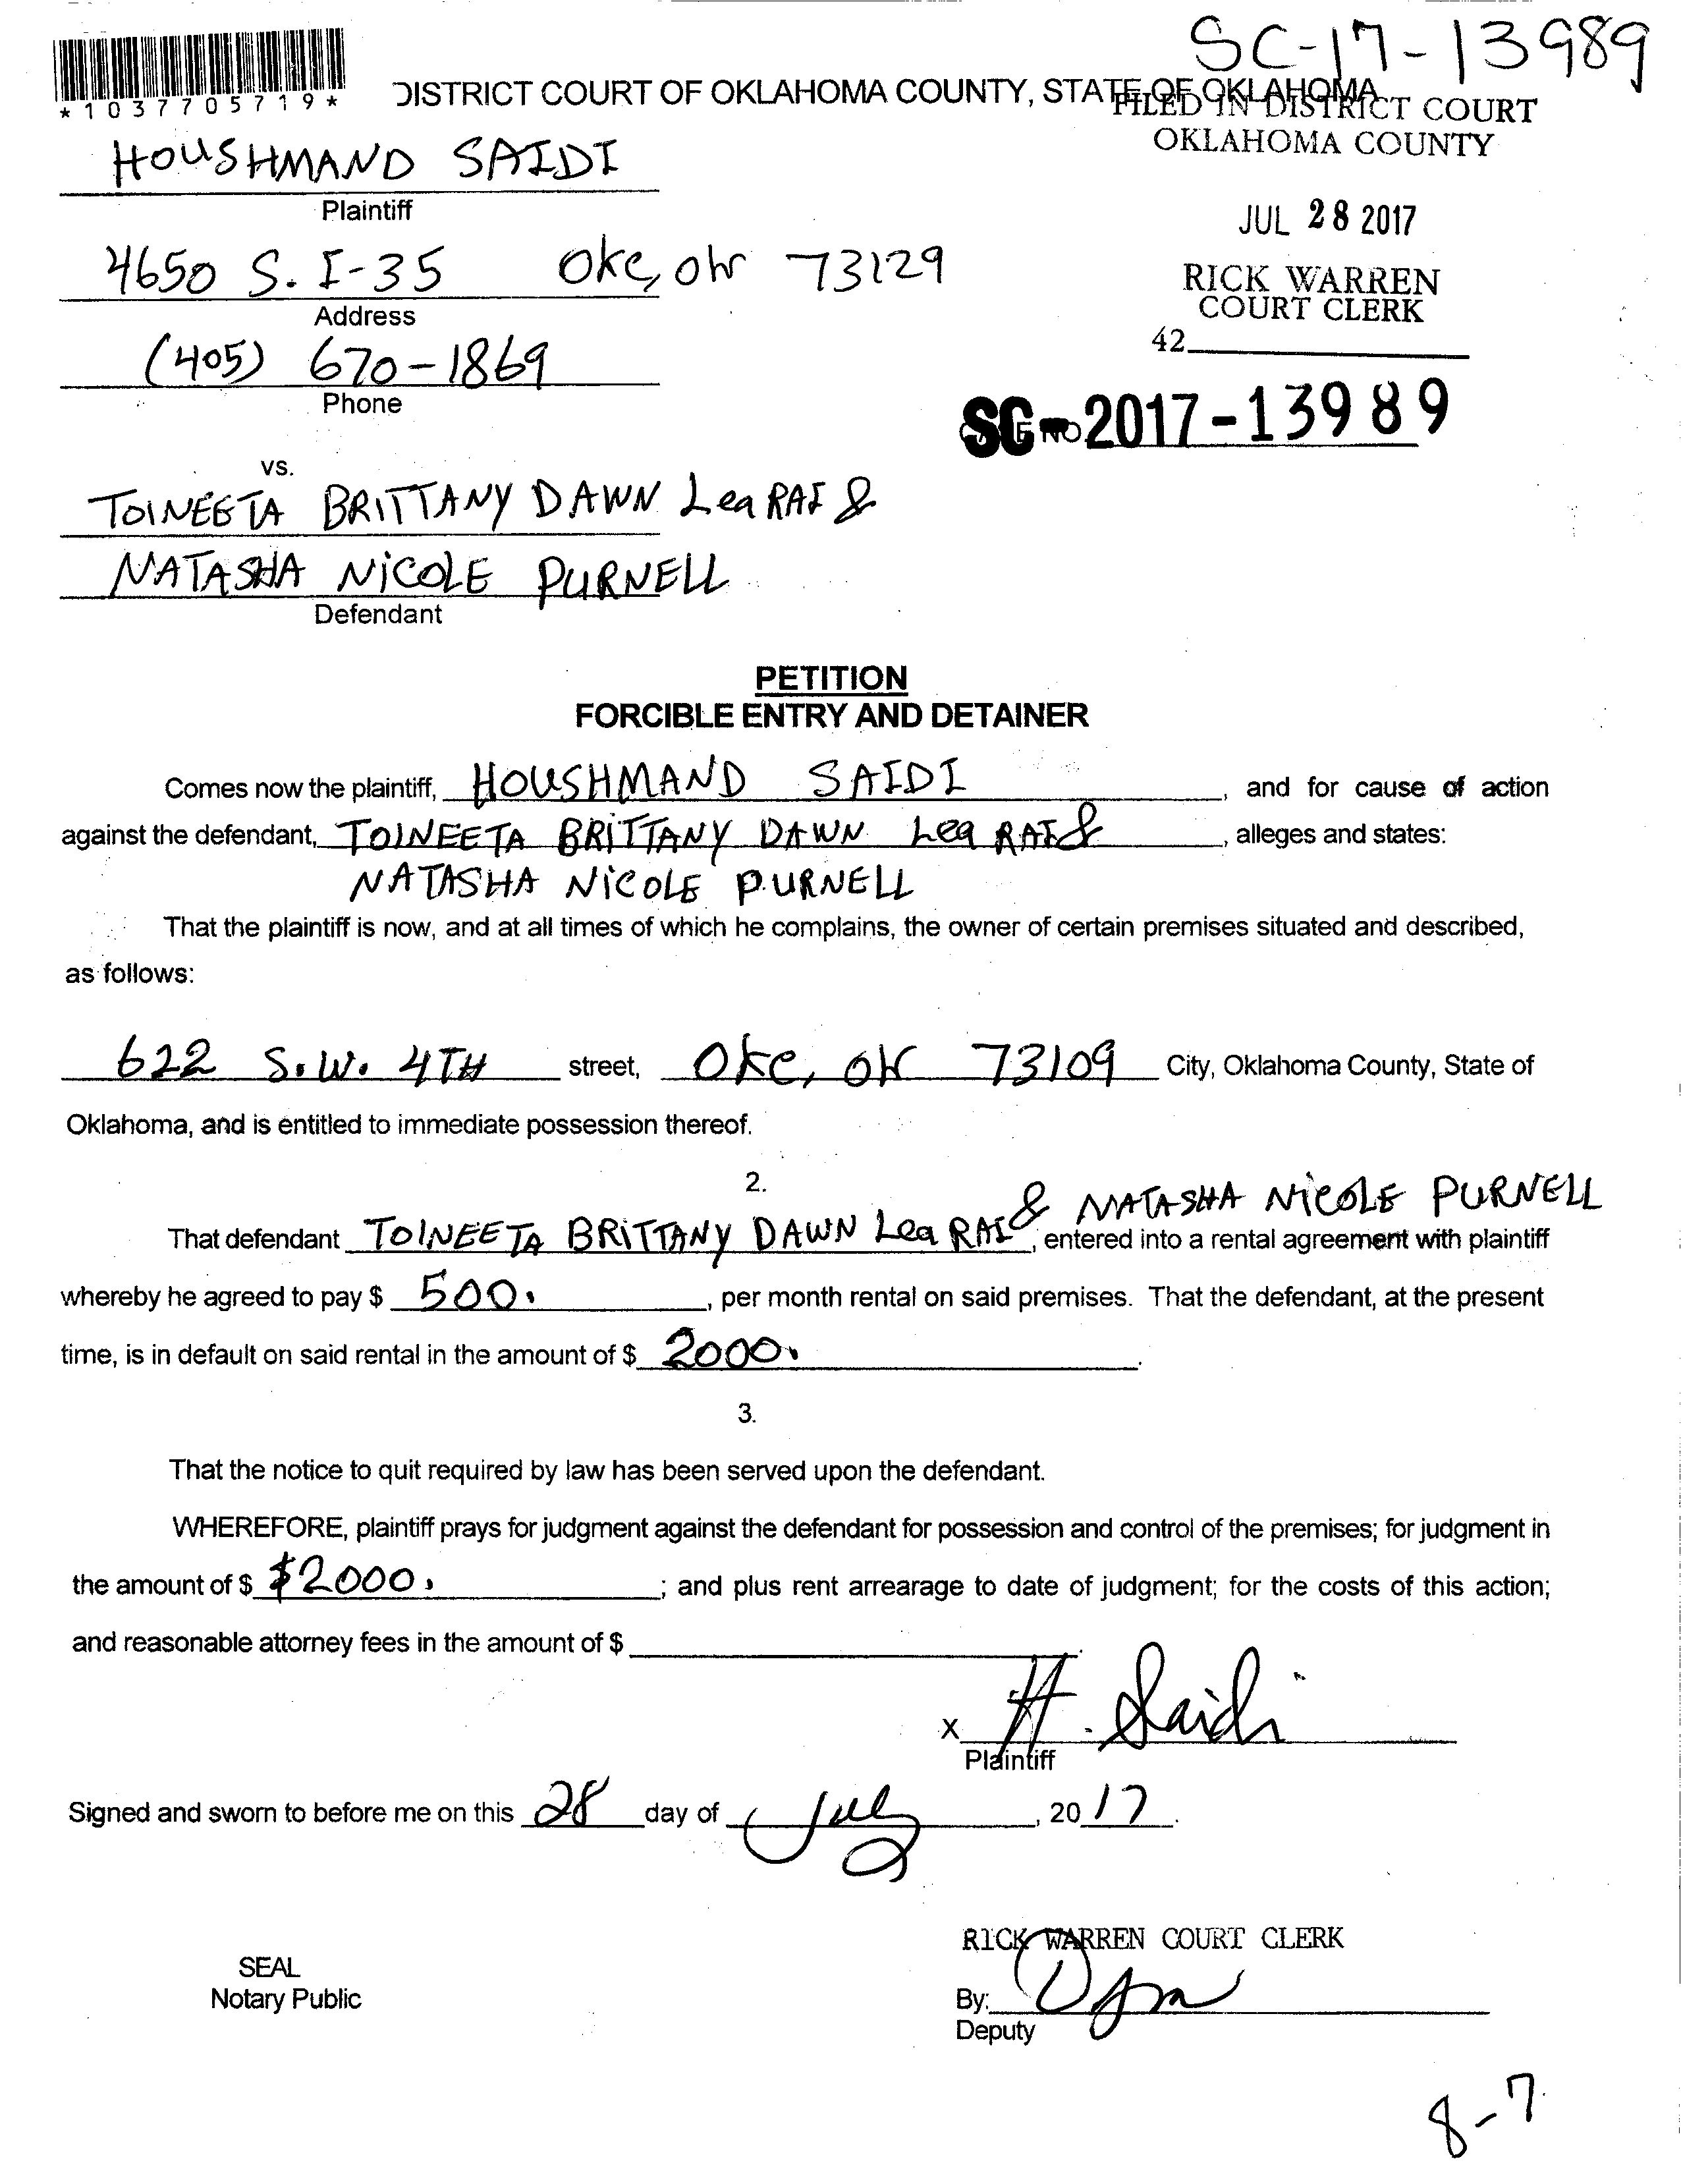 SC-17-13989
*1037705719*
DISTRICT COURT OF OKLAHOMA COUNTY, STATE OF OKLAHOMA
FILED IN DISTRICT COURT
OKLAHOMA COUNTY
HOUSHMAND SAIDI
Plaintiff
JUL 28 2017
4650 S. I-35 OKC, OK 73129
Address
RICK WARREN
COURT CLERK
42
(405) 670-1869
Phone
SC-2017-13989
vs.
TOINEETA BRITTANY DAWN Lea RAI &
NATASHA NiCOLE PURNELL
Defendant
PETITION
FORCIBLE ENTRY AND DETAINER
Comes now the plaintiff, HOUSHMAND SAIDI, and for cause of action
against the defendant, TOINEETA BRITTANY DAWN Lea RAI &, alleges and states:
NATASHA NiCOLE PURNELL
That the plaintiff is now, and at all times of which he complains, the owner of certain premises situated and described,
as follows:
622 S.W. 4TH street, OKC, OK 73109 City, Oklahoma County, State of
Oklahoma, and is entitled to immediate possession thereof.
2.
& NATASHA NiCOLE PURNELL
That defendant TOINEETA BRITTANY DAWN Lea RAI, entered into a rental agreement with plaintiff
whereby he agreed to pay $ 500., per month rental on said premises. That the defendant, at the present
time, is in default on said rental in the amount of $ 2000.
3.
That the notice to quit required by law has been served upon the defendant.
WHEREFORE, plaintiff prays for judgment against the defendant for possession and control of the premises; for judgment in
the amount of $ $2000.; and plus rent arrearage to date of judgment; for the costs of this action;
and reasonable attorney fees in the amount of $
x H. Saidi
Plaintiff
Signed and sworn to before me on this 28 day of July, 2017.
RICK WARREN COURT CLERK
SEAL
Notary Public
By:
Deputy
8-7